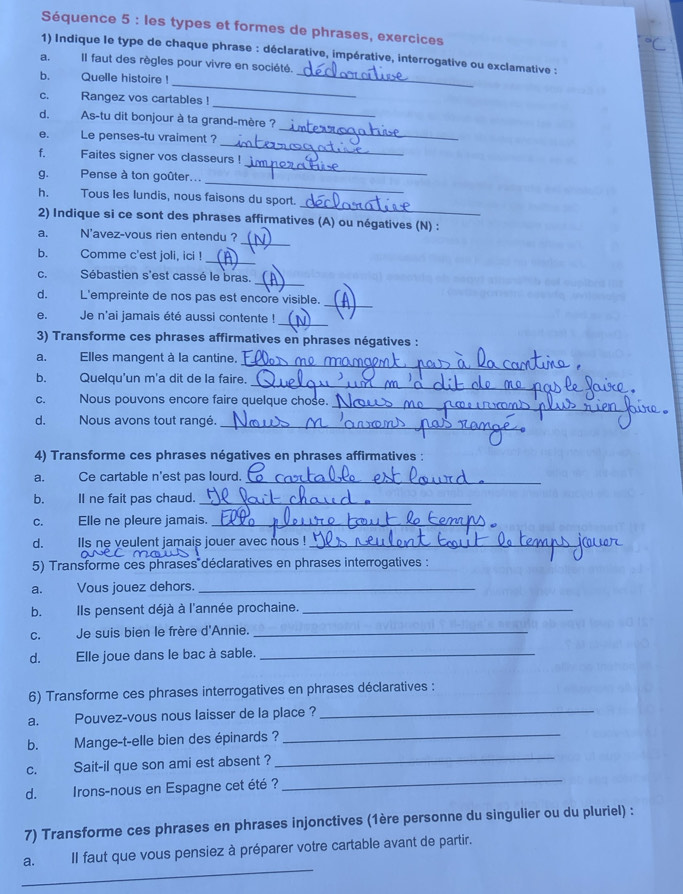 Séquence 5 : les types et formes de phrases, exercices
°C
1) Indique le type de chaque phrase : déclarative, impérative, interrogative ou exclamative :
a. Il faut des règles pour vivre en société. déclarative
b. Quelle histoire !
c. Rangez vos cartables !
d. As-tu dit bonjour à ta grand-mère ? interrogative
e. Le penses-tu vraiment ? interrogative
f. Faites signer vos classeurs ! imperative
g. Pense à ton goûter...
h. Tous les lundis, nous faisons du sport. déclarative
2) Indique si ce sont des phrases affirmatives (A) ou négatives (N) :
a. N'avez-vous rien entendu ? (N)
b. Comme c'est joli, ici ! (A)
c. Sébastien s'est cassé le bras. (A)
d. L'empreinte de nos pas est encore visible. (A)
e. Je n'ai jamais été aussi contente ! (N)
3) Transforme ces phrases affirmatives en phrases négatives :
a. Elles mangent à la cantine. Elles ne mangent pas à la cantine.
b. Quelqu'un m'a dit de la faire. Quelqu'un m'a dit de ne pas le faire.
c. Nous pouvons encore faire quelque chose. Nous ne pouvons plus rien faire.
d. Nous avons tout rangé. Nous n'avons pas rangé.
4) Transforme ces phrases négatives en phrases affirmatives :
a. Ce cartable n'est pas lourd. Ce cartable est lourd.
b. Il ne fait pas chaud. Il fait chaud.
c. Elle ne pleure jamais. Elle pleure tout le temps.
d. Ils ne veulent jamais jouer avec nous ! Ils veulent tout le temps jouer
avec nous !
5) Transforme ces phrases déclaratives en phrases interrogatives :
a. Vous jouez dehors.
b. Ils pensent déjà à l'année prochaine.
c. Je suis bien le frère d'Annie.
d. Elle joue dans le bac à sable.
6) Transforme ces phrases interrogatives en phrases déclaratives :
a. Pouvez-vous nous laisser de la place ?
b. Mange-t-elle bien des épinards ?
c. Sait-il que son ami est absent ?
d. Irons-nous en Espagne cet été ?
7) Transforme ces phrases en phrases injonctives (1ère personne du singulier ou du pluriel) :
a. Il faut que vous pensiez à préparer votre cartable avant de partir.